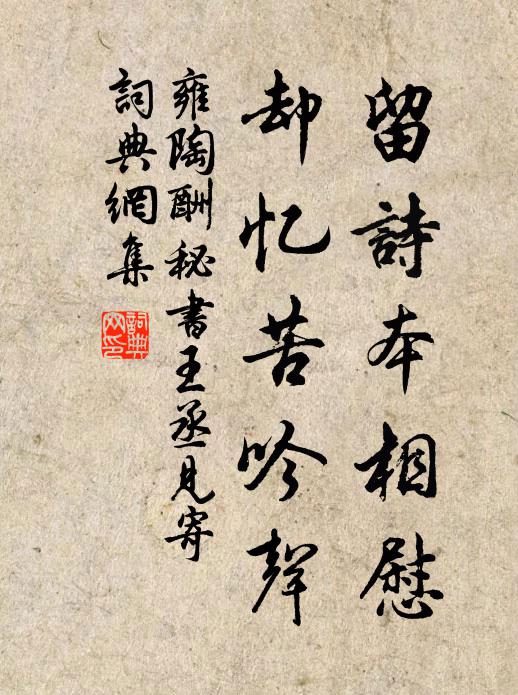 留詩本相慰
却忆苦吟聲
雍陶酬秘書王丞見寄
詞典網集
詞典網印